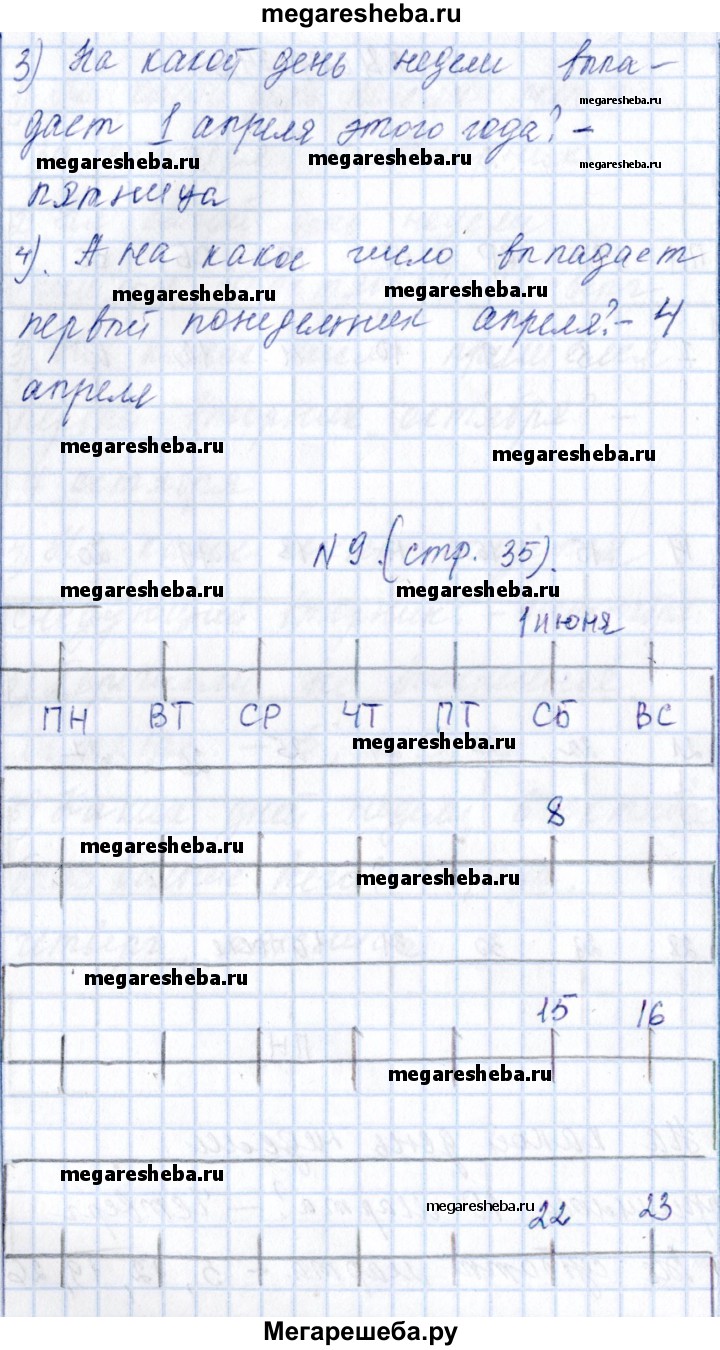 megaresheba.ru
3) На какой день недели выпа-
megaresheba.ru
дает 1 апреля этого года? -
megaresheba.ru megaresheba.ru megaresheba.ru
пятница
4). А на какое число выпадает
megaresheba.ru megaresheba.ru
первый понедельник апреля? - 4
апреля
megaresheba.ru megaresheba.ru
N 9. (стр. 35).
megaresheba.ru megaresheba.ru
1 июня
ПН ВТ СР ЧТ ПТ СБ ВС
megaresheba.ru
8
megaresheba.ru
megaresheba.ru
megaresheba.ru
15 16
megaresheba.ru
megaresheba.ru
megaresheba.ru
22 23
Мегарешеба.ру